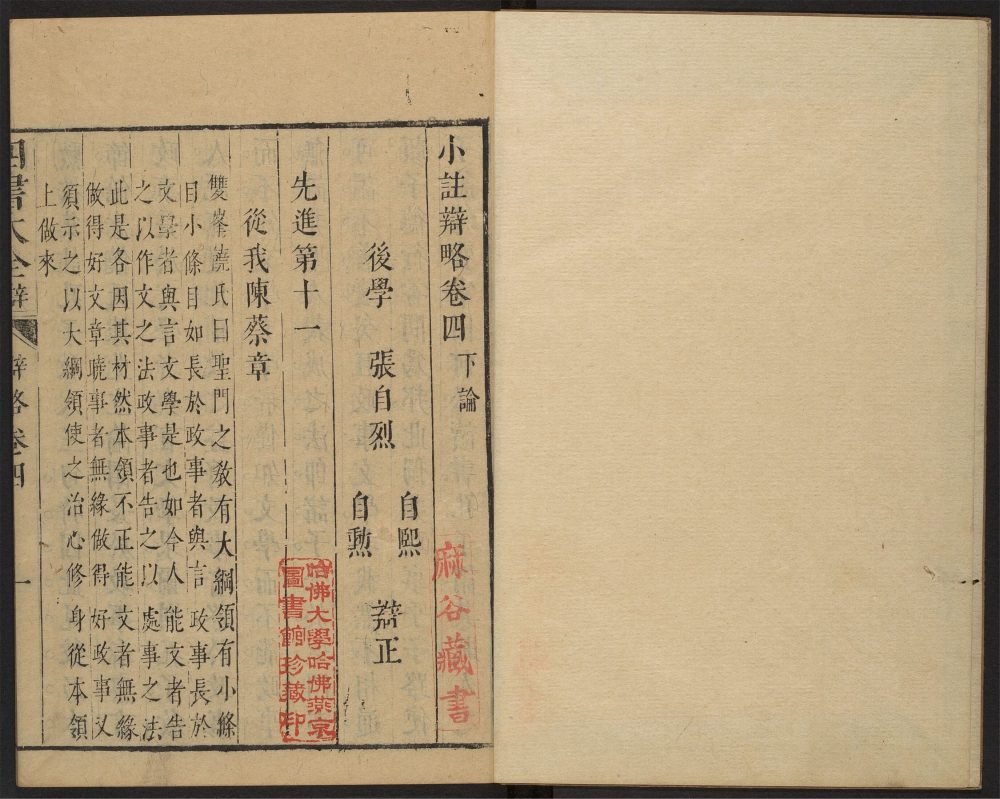 小註辯略卷四 下論
自熙
後學 張自烈 辯正
自勲
先進第十一
從我陳蔡章
雙峯饒氏曰聖門之教有大綱領有小條
目小條目如長於政事者與言政事長於
文學者與言文學是也如今人能文者告
之以作文之法政事者告之以處事之法
此是各因其材然本領不正能文者無緣
做得好文章曉事者無緣做得好政事又
須示之以大綱領使之治心修身從本領
上做來
四書大全辯 辯略卷四 一
麻谷藏書
哈佛大學哈佛燕京
圖書館珍藏印